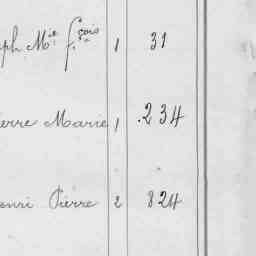 ph Mie fçois 1 31
ierre Marie 1 .234
enri Pierre 2 824